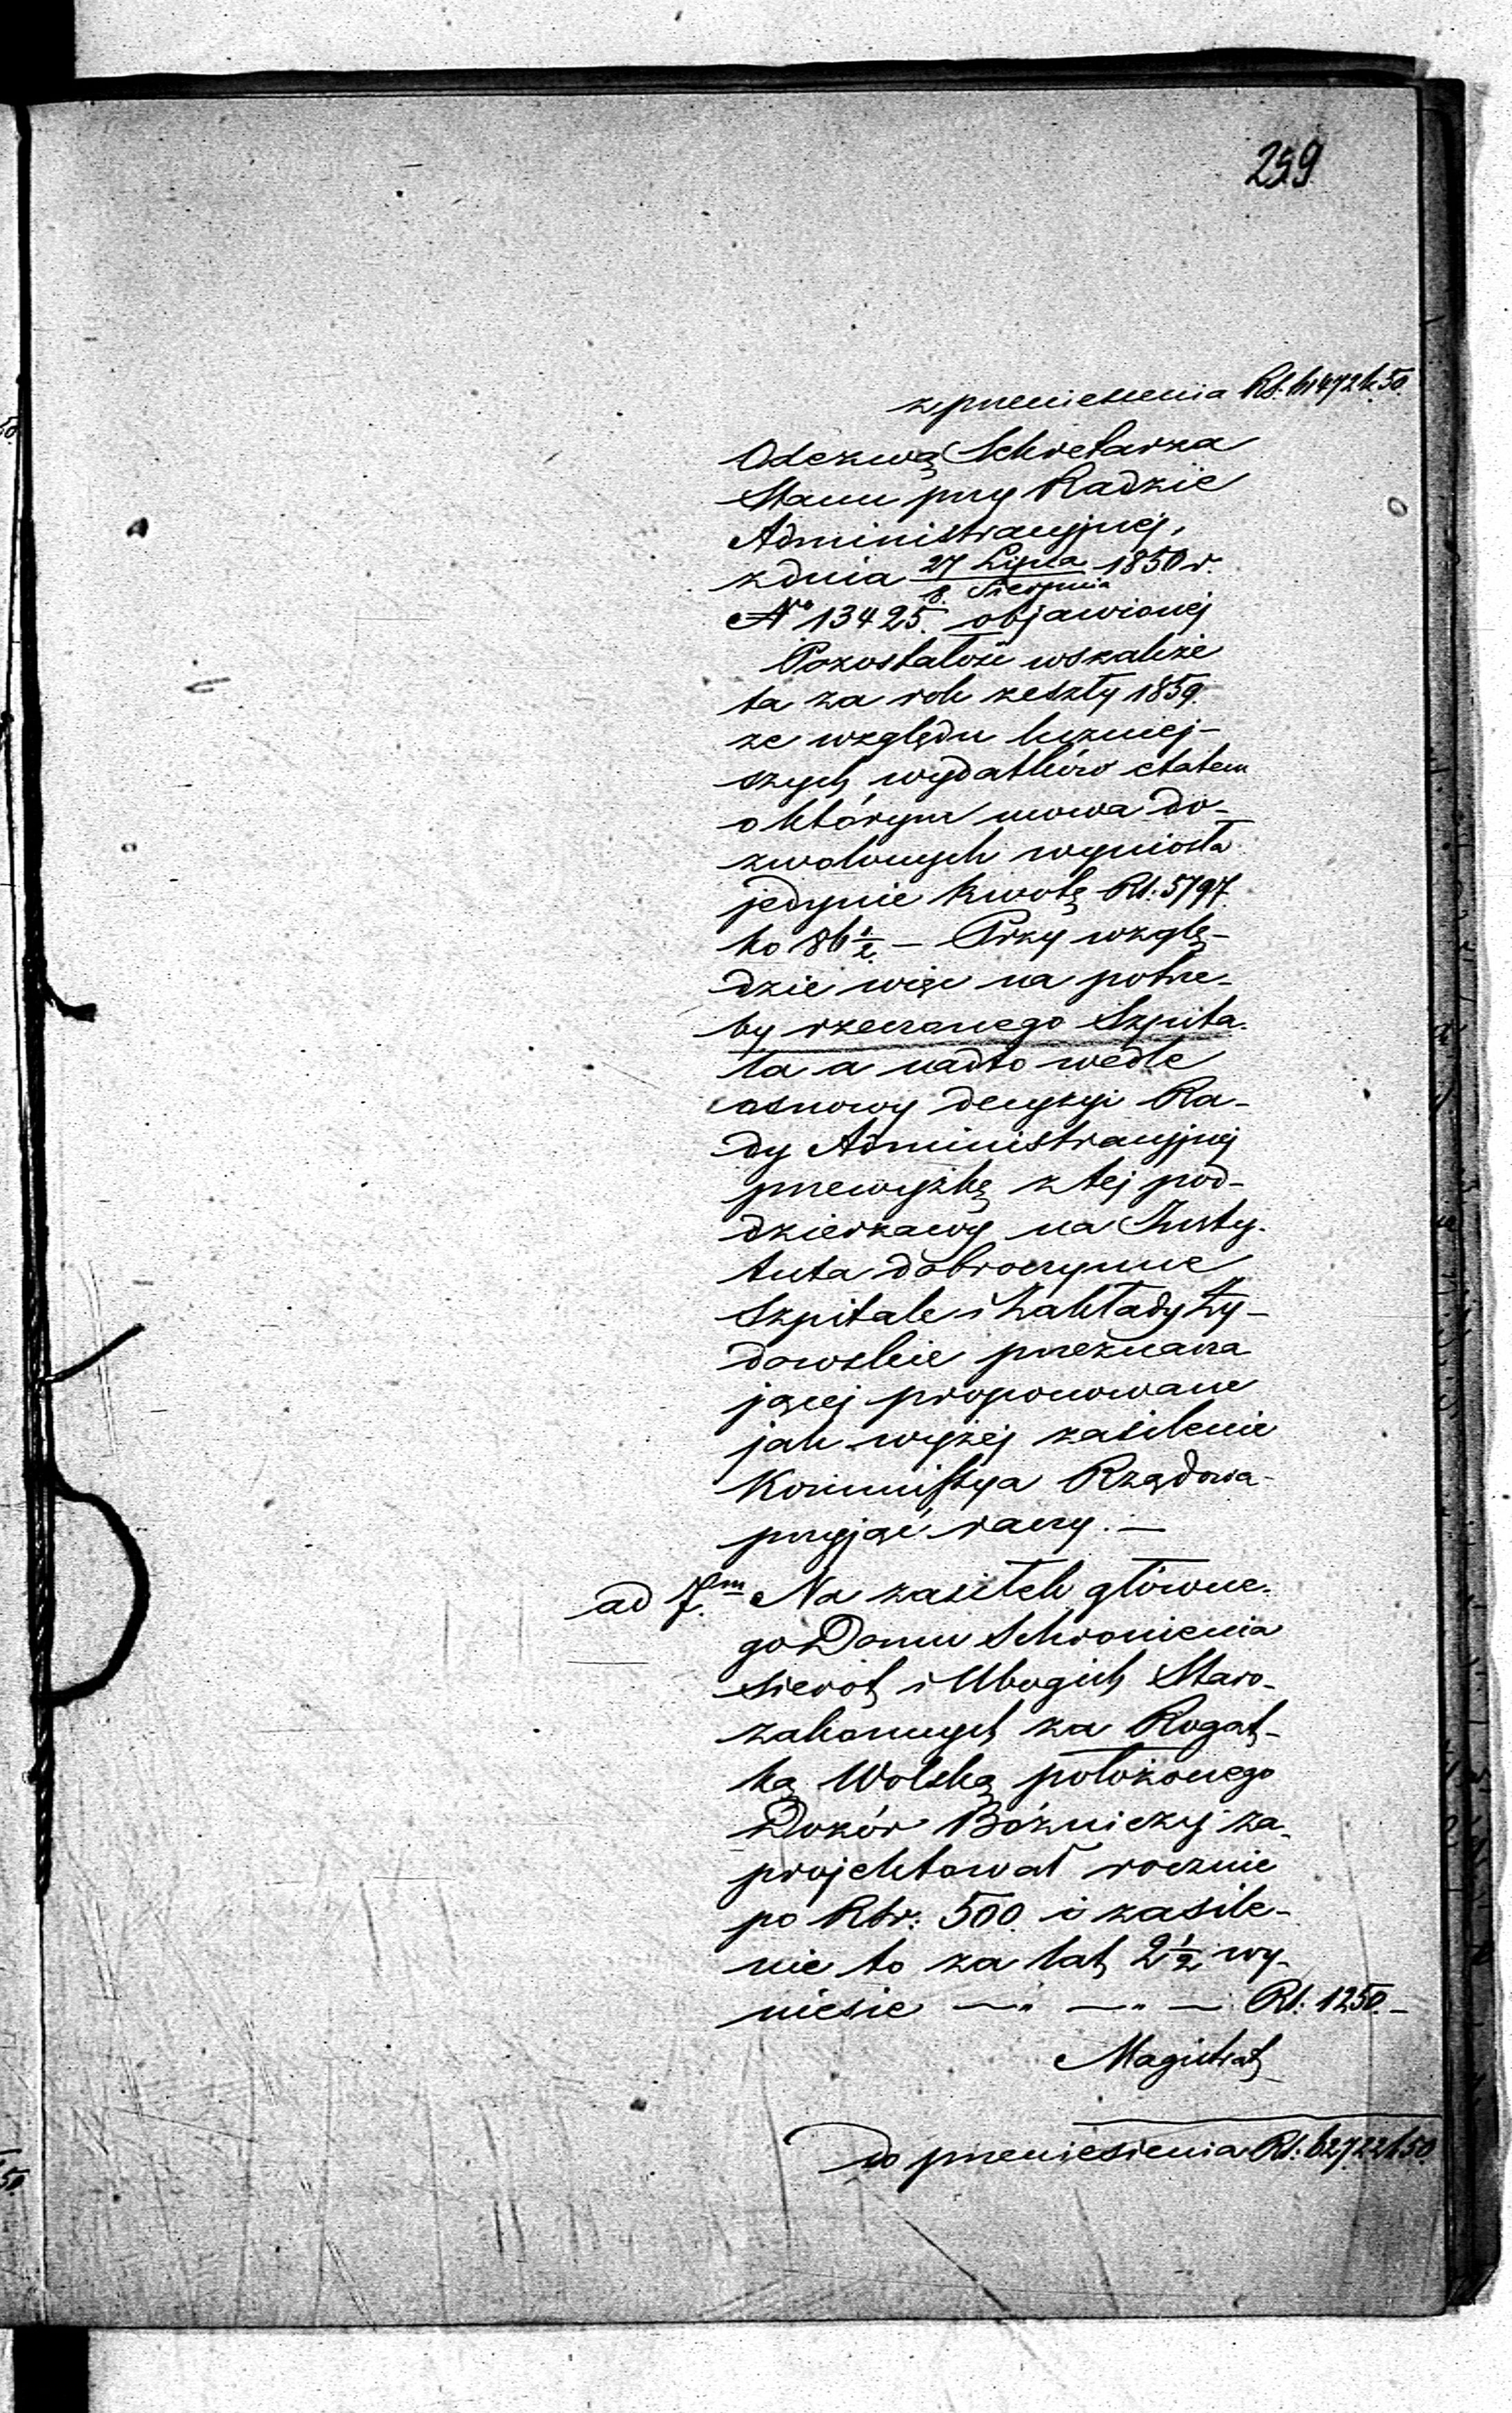 259
z przeniesienia Rs. 61472 k. 50.
Odezwą Sekretarza
Stanu przy Radzie
Administracyjnej,
z dnia 27 Lipca / 8. Sierpnia 1850 r.
No 13425. objawionej
Pozostałość wszakże
ta za rok zeszły 1859.
ze względu liczniej-
szych wydatków etatem
o którym mowa do-
zwolonych wyniosła
jedynie kwotę Rs. 5797.
ko 86 1/2. — Przy wzglę-
dzie więc na potrze-
by rzeczonego Szpita-
la a nadto wedle
osnowy decyzyi Ra-
dy Administracyjnej
przewyżkę z tej pod-
dzierżawy na Insty-
tuta dobroczynne
Szpitale i Zakłady Ży-
dowskie przeznacza
jącej proponowane
jak wyżej zasilenie
Kommissya Rządowa
przyjąć raczy. —
ad 7.m Na zasiłek główne-
go Domu Schronienia
sierot i Ubogich Staro-
zakonnych za Rogat-
ką Wolską położonego
Dozór Bóżniczy za-
projektował rocznie
po Rsr: 500. i zasile-
nie to za lat 2 1/2 wy-
niesie —„ —„ — Rs. 1250. —
Magistrat
do przeniesienia Rs. 62722 k. 50.